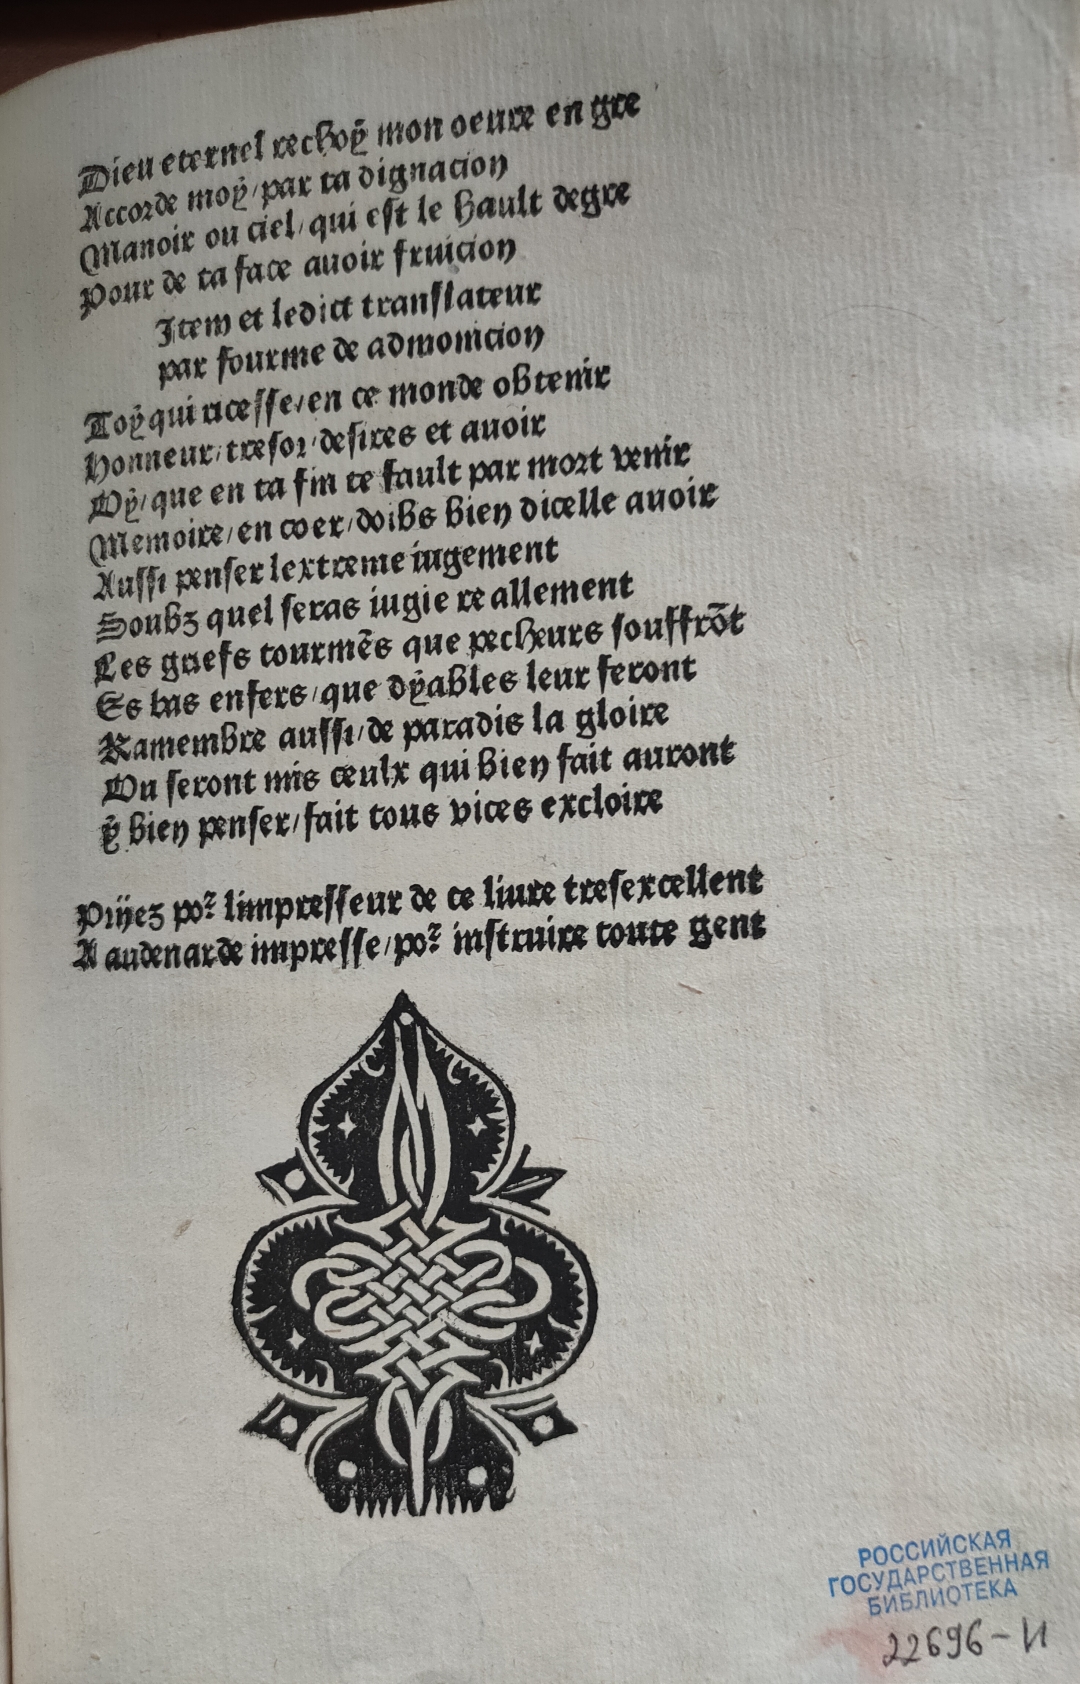 Dieu eternel rechoÿ mon oeure en gre
Accorde moÿ/par ta dignacion
Manoir ou ciel/qui est le hault degre
Pour de ta face auoir fruicion
Item et ledict translateur
par fourme de admonicion
Toÿ qui ricesse/en ce monde obtenir
Honneur/tresor/desires et auoir
Vÿ/que en ta fin te fault par mort venir
Memoire/en coer/doibs bien dicelle auoir
Aussi penser lextreme iugement
Soubz quel seras iugie reallement
Les griefs tourmēs que pecheurs souffrōt
Es bas enfers/que dÿables leur feront
Ramembre aussi/de paradis la gloire
Ou seront mis ceulx qui bien fait auront
ÿ bien penser/fait tous vices excloire
Priiez poꝛ limpresseur de ce liure tresexcellent
A audenarde impresse/poꝛ instruire toute gent
РОССИЙСКАЯ
ГОСУДАРСТВЕННАЯ
БИБЛИОТЕКА
22696-И